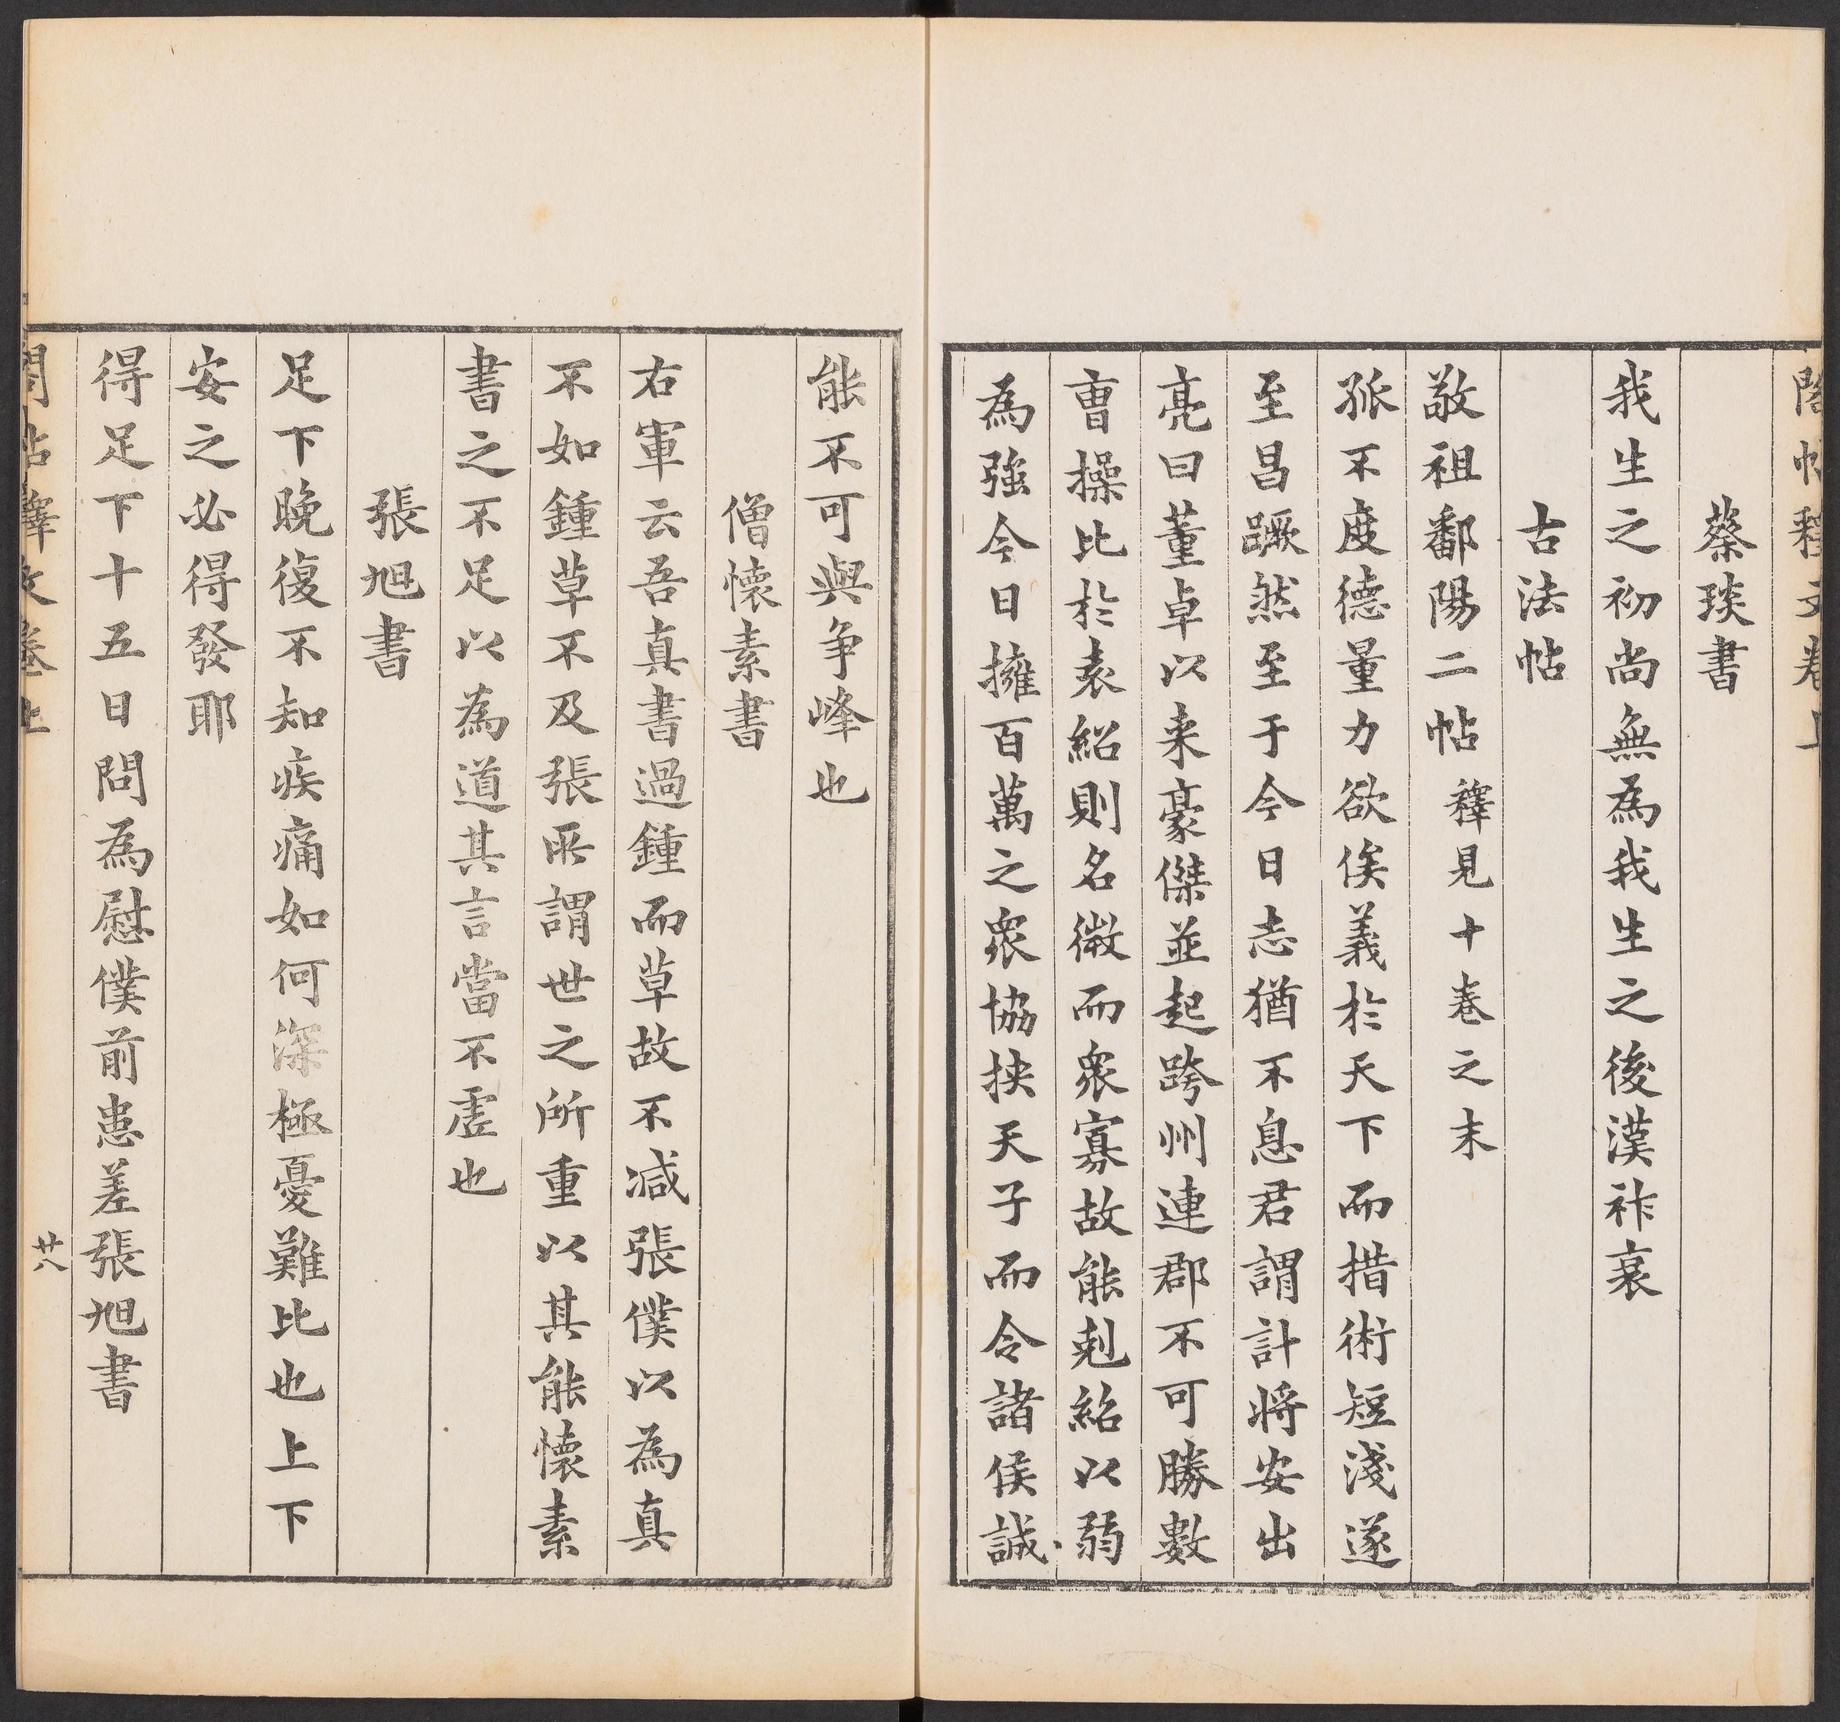 閣帖釋文卷上
蔡琰書
我生之初尚無為我生之後漢祚衰
古法帖
敬祖鄱陽二帖釋見十卷之末
孤不度德量力欲俟義於天下而措術短淺遂
至昌蹶然至于今日志猶不息君謂計將安出
亮曰董卓以来豪傑並起跨州連郡不可勝數
曹操比於袁紹則名微而衆寡故能剋紹以弱
為強今日擁百萬之衆協挾天子而令諸侯誠
能不可與争峰也
僧懷素書
右軍云吾真書過鍾而草故不减張僕以為真
不如鍾草不及張所謂世之所重以其能懷素
書之不足以為道其言當不虛也
張旭書
足下晚復不知疾痛如何深極憂難比也上下
安之必得發耶
得足下十五日問為慰僕前患差張旭書
閣帖釋文卷上
廿八